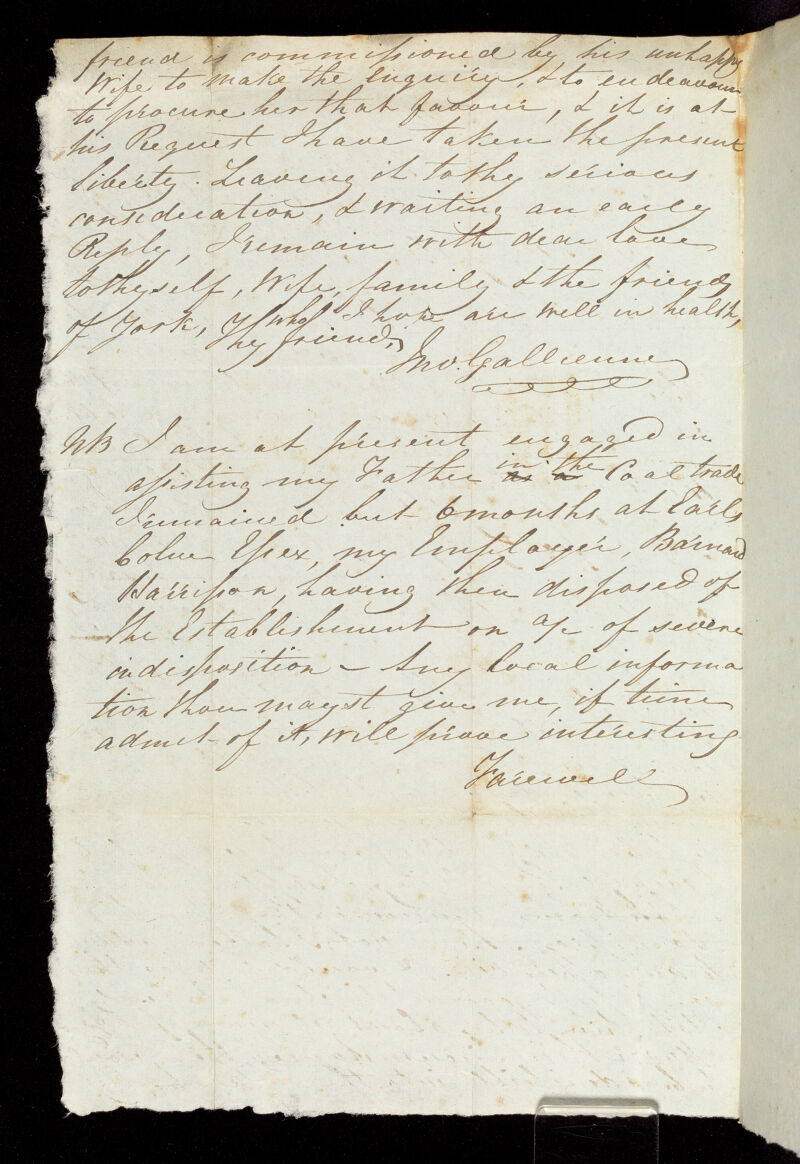 friend is commissioned by his unhappy
Wife to make the enquiry, & to endeavour
to procure her that favour, & it is at
his Request I have taken the present
liberty. Leaving it to thy serious
consideration, & waiting an early
Reply, I remain with dear love
to thyself, Wife, family & the friends
of York, who I hope are well in health,
Thy friend,
Jno. Gallienne
NB I am at present engaged in
assisting my Father as a in the Coal trade
I remained but 6 months at Earls
Colne Essex, my Employer, Barnard
Harrisson, having then disposed of
the Establishment on a/c of severe
indisposition – Any local informa
tion thou mayst give me, if time
admit of it, will prove interesting
Farewell